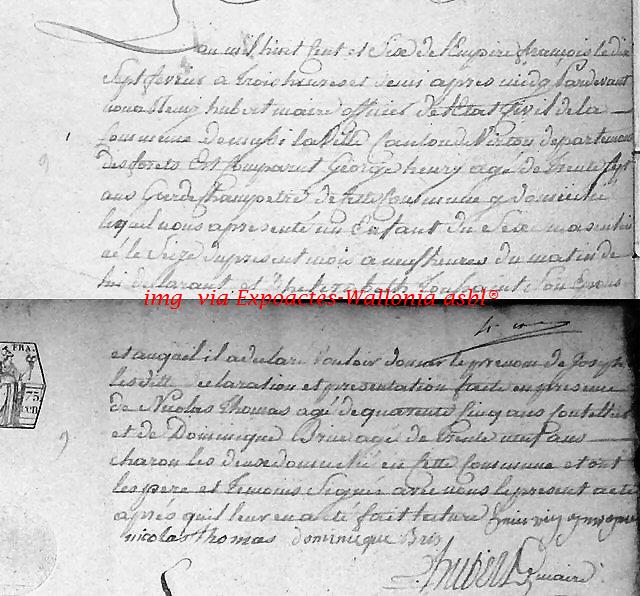 L'an mil huit cent et Seize de l'Empire françois le dix
Sept fevrier a trois heures et demi apres midy Pardevant
nous Remi hubert maire officier de l'Etat Civil de la
Commune de la Ville Canton de Virton departement
des forets Est Comparut George henry agé de trente Sept
ans Garde Champetre de cette Commune y domicilié
lequel nous a presenté un Enfant du Sexe masculin
né le Seize du present mois a neuf heures du matin de
lui declarant et d' Elizabeth Toussaint Son Epouse
img via Expoactes-Wallonia asbl®
et auquel il a declaré Vouloir donner le prenom de Joseph
lesditte declaration et presentation faite en presence
de Nicolas Thomas agé de quarente Cinq ans
et de Dominique Bris agé de trente neuf ans
charon les deux domicilié en cette Commune et ont
les pere et temoins Signé avec nous le present acte
aprés qu'il leur en a été fait lecture
nicolas thomas dominique Bris
hubert maire
FRA.
75